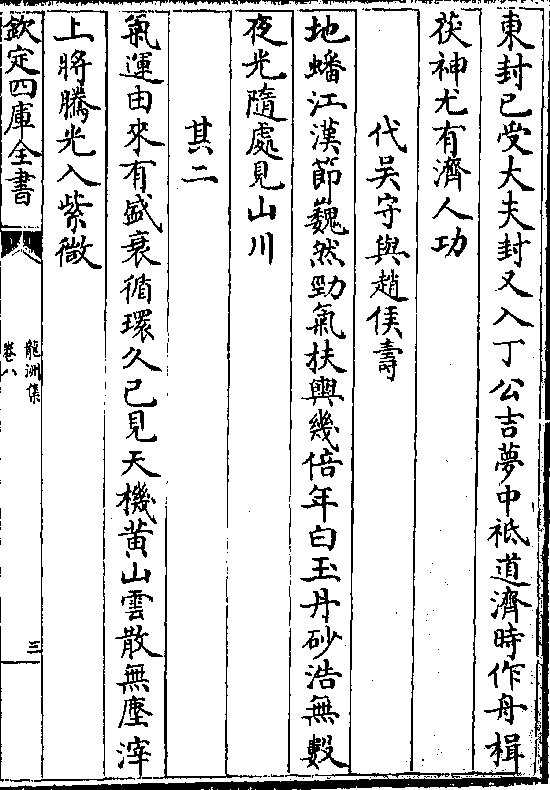 東封已受大夫封又入丁公吉夢中祗道濟時作舟楫
茯神尤有濟人功
代吳守與趙侯壽
地蟠江漢節巍然勁氣扶輿幾倍年白玉丹砂浩無數
夜光隨處見山川
其二
氣運由來有盛衰循環久已見天機黄山雲散無塵滓
上將騰光入紫微
欽定四庫全書
龍洲集
卷八
三